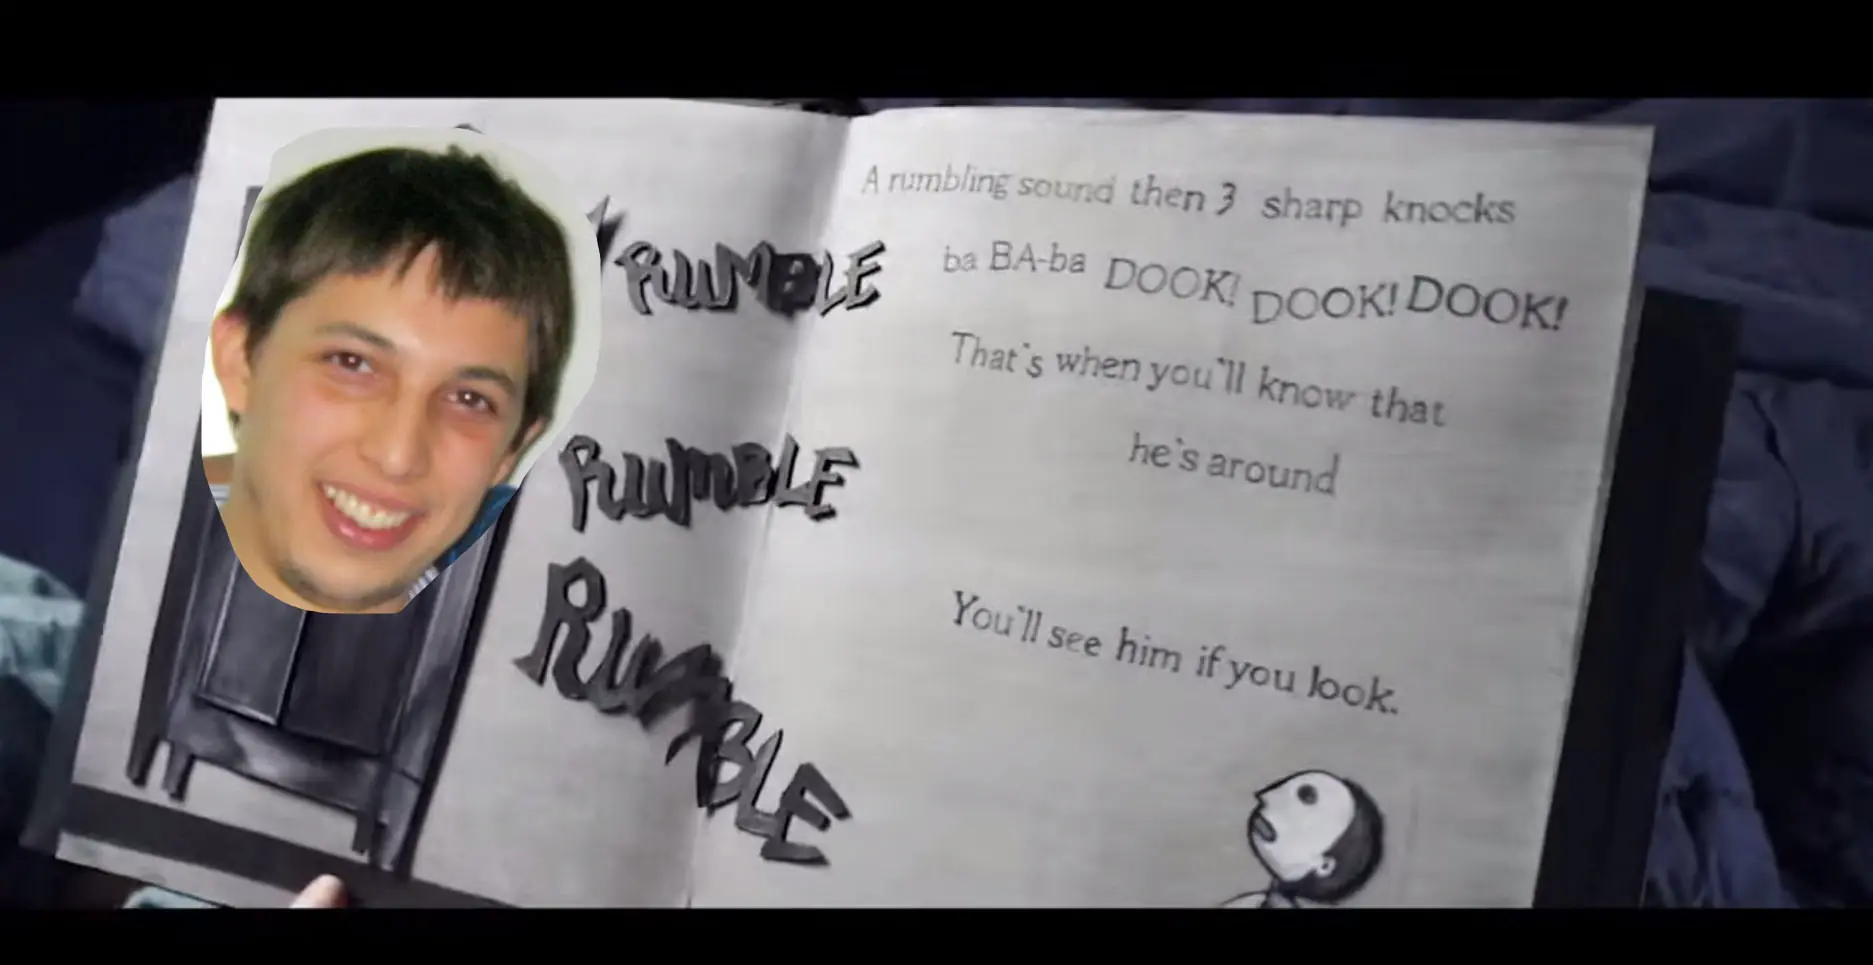 RUUMBLE
RUUMBLE
RUMBLE
A rumbling sound then 3 sharp knocks
ba BA-ba DOOK! DOOK! DOOK!
That's when you'll know that
he's around
You'll see him if you look.